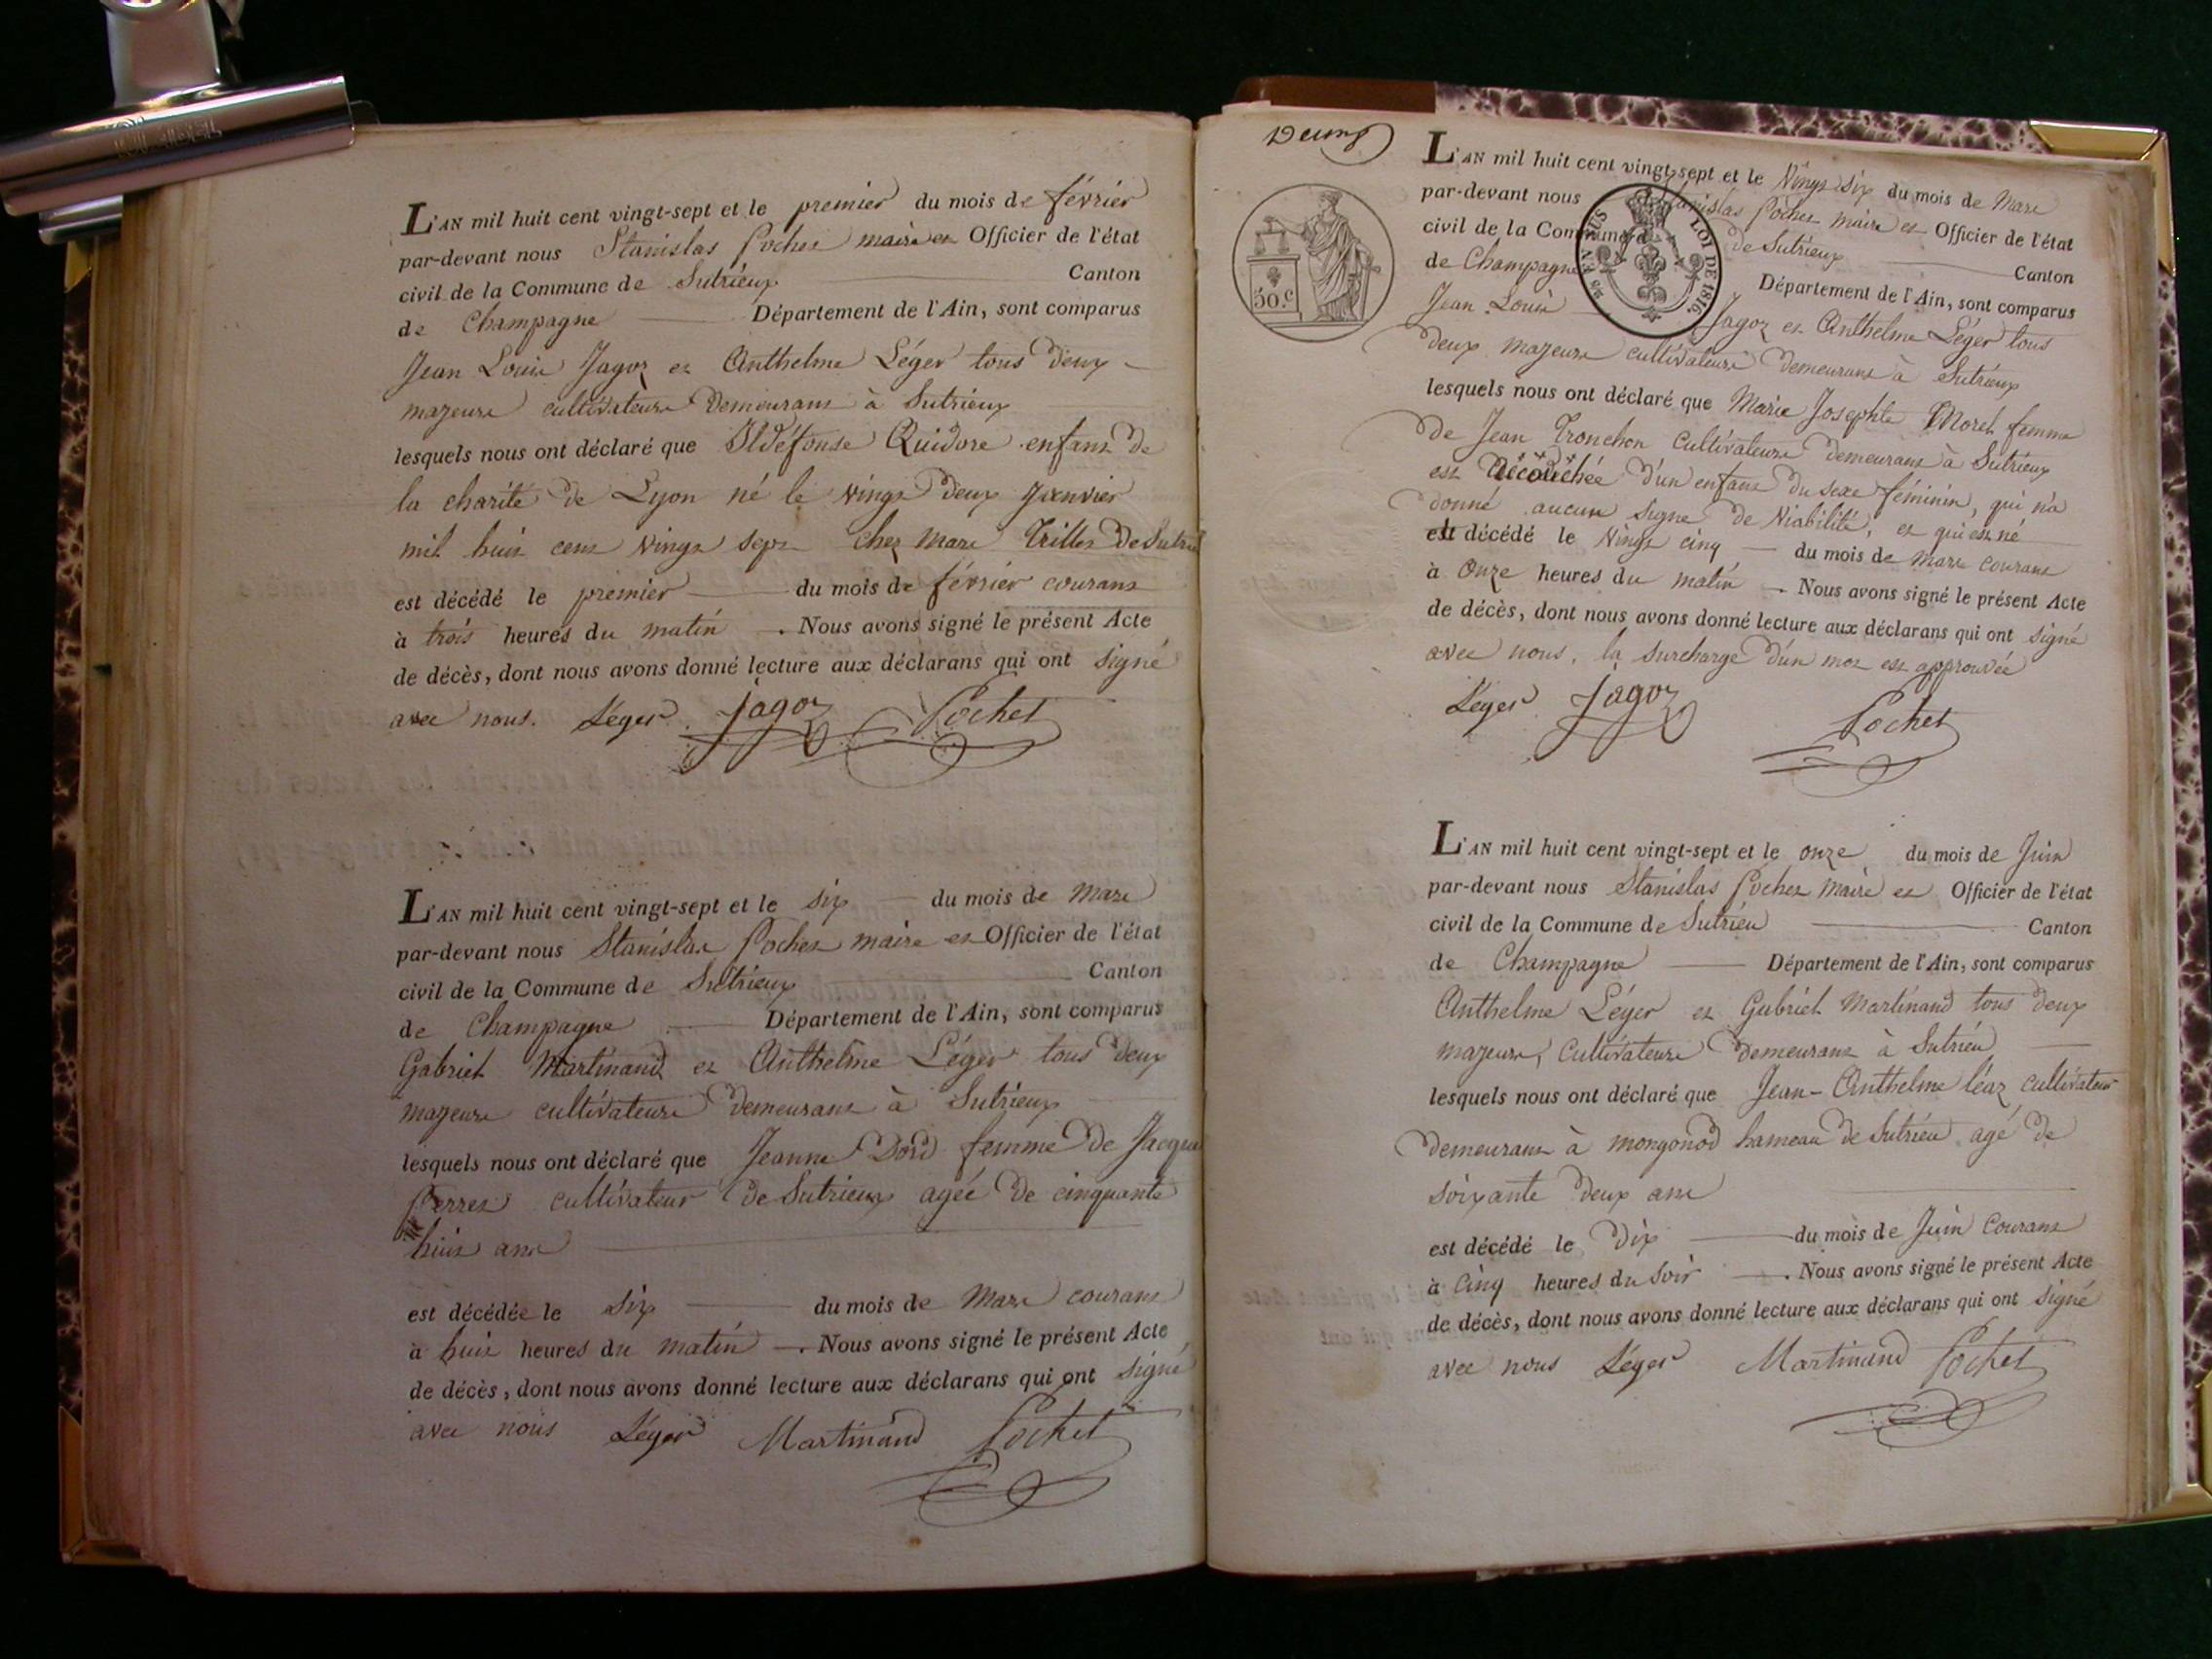 L'AN mil huit cent vingt-sept et le premier du mois de février
par-devant nous Stanislas Pochet maire et Officier de l'état
civil de la Commune de Sutrieux Canton
de Champagne Département de l'Ain, sont comparus
Jean Louis Jagoz et Anthelme Léger tous deux
majeurs cultivateurs demeurant à Sutrieux
lesquels nous ont déclaré que Ildéfonse Quidore enfant de
la charité de Lyon né le vingt deux janvier
mil huit cent vingt sept chez Marc Trillet de Sutrieu
est décédé le premier du mois de février courant
à trois heures du matin. Nous avons signé le présent Acte
de décès, dont nous avons donné lecture aux déclarans qui ont signé
avec nous. Léger Jagoz Pochet
L'AN mil huit cent vingt-sept et le six du mois de mars
par-devant nous Stanislas Pochet maire et Officier de l'état
civil de la Commune de Sutrieux Canton
de Champagne Département de l'Ain, sont comparus
Gabriel Martinand et Anthelme Léger tous deux
majeurs cultivateurs demeurant à Sutrieux
lesquels nous ont déclaré que Jeanne Dord femme de Jacques
Perret cultivateur de Sutrieux agée de cinquante
huit ans
est décédée le six du mois de mars courant
à huit heures du matin. Nous avons signé le présent Acte
de décès, dont nous avons donné lecture aux déclarans qui ont signé
avec nous Léger Martinand Pochet
Deux
50 c
LOI DE 1816.
L'AN mil huit cent vingt-sept et le vingt six du mois de mars
par-devant nous Stanislas Pochet maire et Officier de l'état
civil de la Commune de Sutrieux Canton
de Champagne Département de l'Ain, sont comparus
Jean Louis Jagoz et Anthelme Léger tous
deux majeurs cultivateurs demeurant à Sutrieux
lesquels nous ont déclaré que Marie Josephte Moret femme
de Jean Tronchon cultivateur demeurant à Sutrieux
est accouchée d'un enfant du sexe féminin, qui n'a
donné aucun signe de viabilité, et qui est né
est décédé le vingt cinq du mois de mars courant
à onze heures du matin. Nous avons signé le présent Acte
de décès, dont nous avons donné lecture aux déclarans qui ont signé
avec nous, la surcharge d'un mot est approuvée
Léger Jagoz Pochet
L'AN mil huit cent vingt-sept et le onze du mois de Juin
par-devant nous Stanislas Pochet maire et Officier de l'état
civil de la Commune de Sutrieu Canton
de Champagne Département de l'Ain, sont comparus
Anthelme Léger et Gabriel Martinand tous deux
majeurs, cultivateurs demeurant à Sutrieu
lesquels nous ont déclaré que Jean-Anthelme léaz cultivateur
demeurant à mongonod hameau de Sutrieu agé de
soixante deux ans
est décédé le dix du mois de Juin courant
à cinq heures du soir. Nous avons signé le présent Acte
de décès, dont nous avons donné lecture aux déclarans qui ont signé
avec nous Léger Martinand Pochet